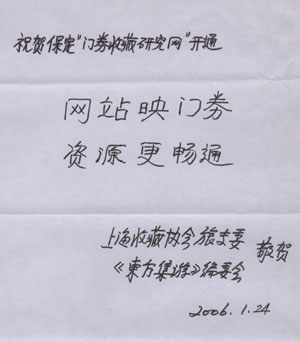 祝贺保定"门券收藏研究网"开通
网站映门券
资源更畅通
上海收藏协会旅专委 敬贺
《东方集游》编委会
2006.1.24